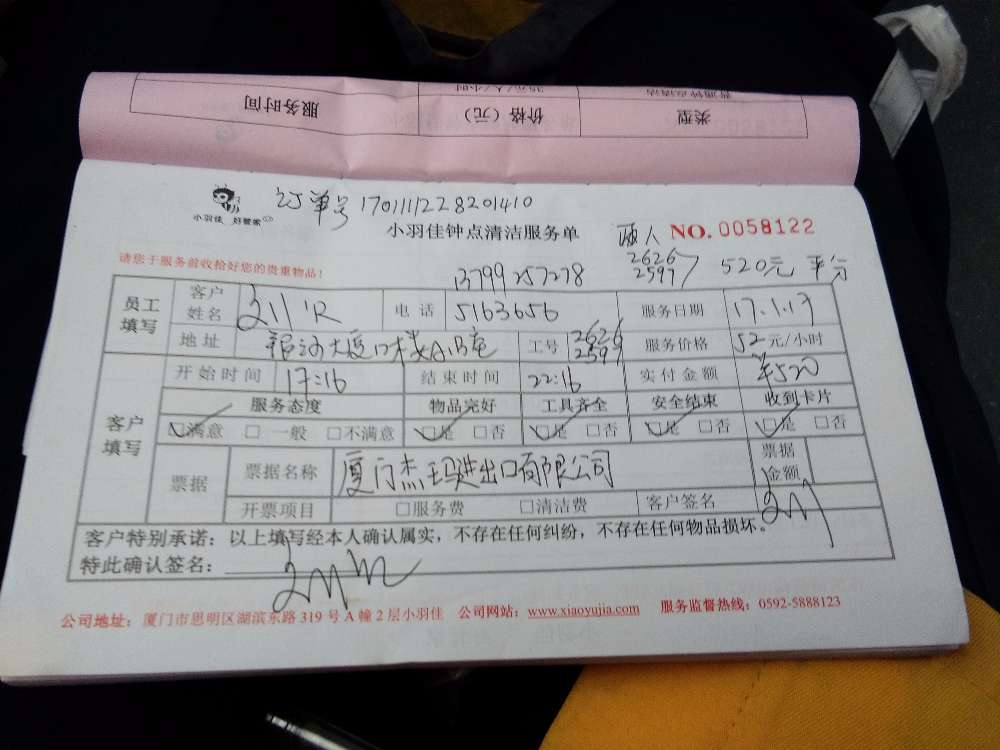 服务时间 价格（元） 类型
小羽佳 好管家
订单号 1701111228201410
小羽佳钟点清洁服务单
两人 NO. 0058122
请您于服务前收拾好您的贵重物品！
13799257278
2626
2597
520元 平分
员工填写 客户姓名 电话 5163656 服务日期 17.1.13
地址 工号 2626 2597 服务价格 52元/小时
客户填写 开始时间 17:16 结束时间 22:16 实付金额 ¥520
服务态度 物品完好 工具齐全 安全结束 收到卡片
☑满意 □一般 □不满意 ☑是 □否 ☑是 □否 ☑是 □否 ☑是 □否
票据 票据名称 厦门杰玛进出口有限公司 票据金额
开票项目 □服务费 □清洁费 客户签名
客户特别承诺：以上填写经本人确认属实，不存在任何纠纷，不存在任何物品损坏。
特此确认签名：
公司地址：厦门市思明区湖滨东路319号A幢2层小羽佳 公司网站：www.xiaoyujia.com 服务监督热线：0592-5888123